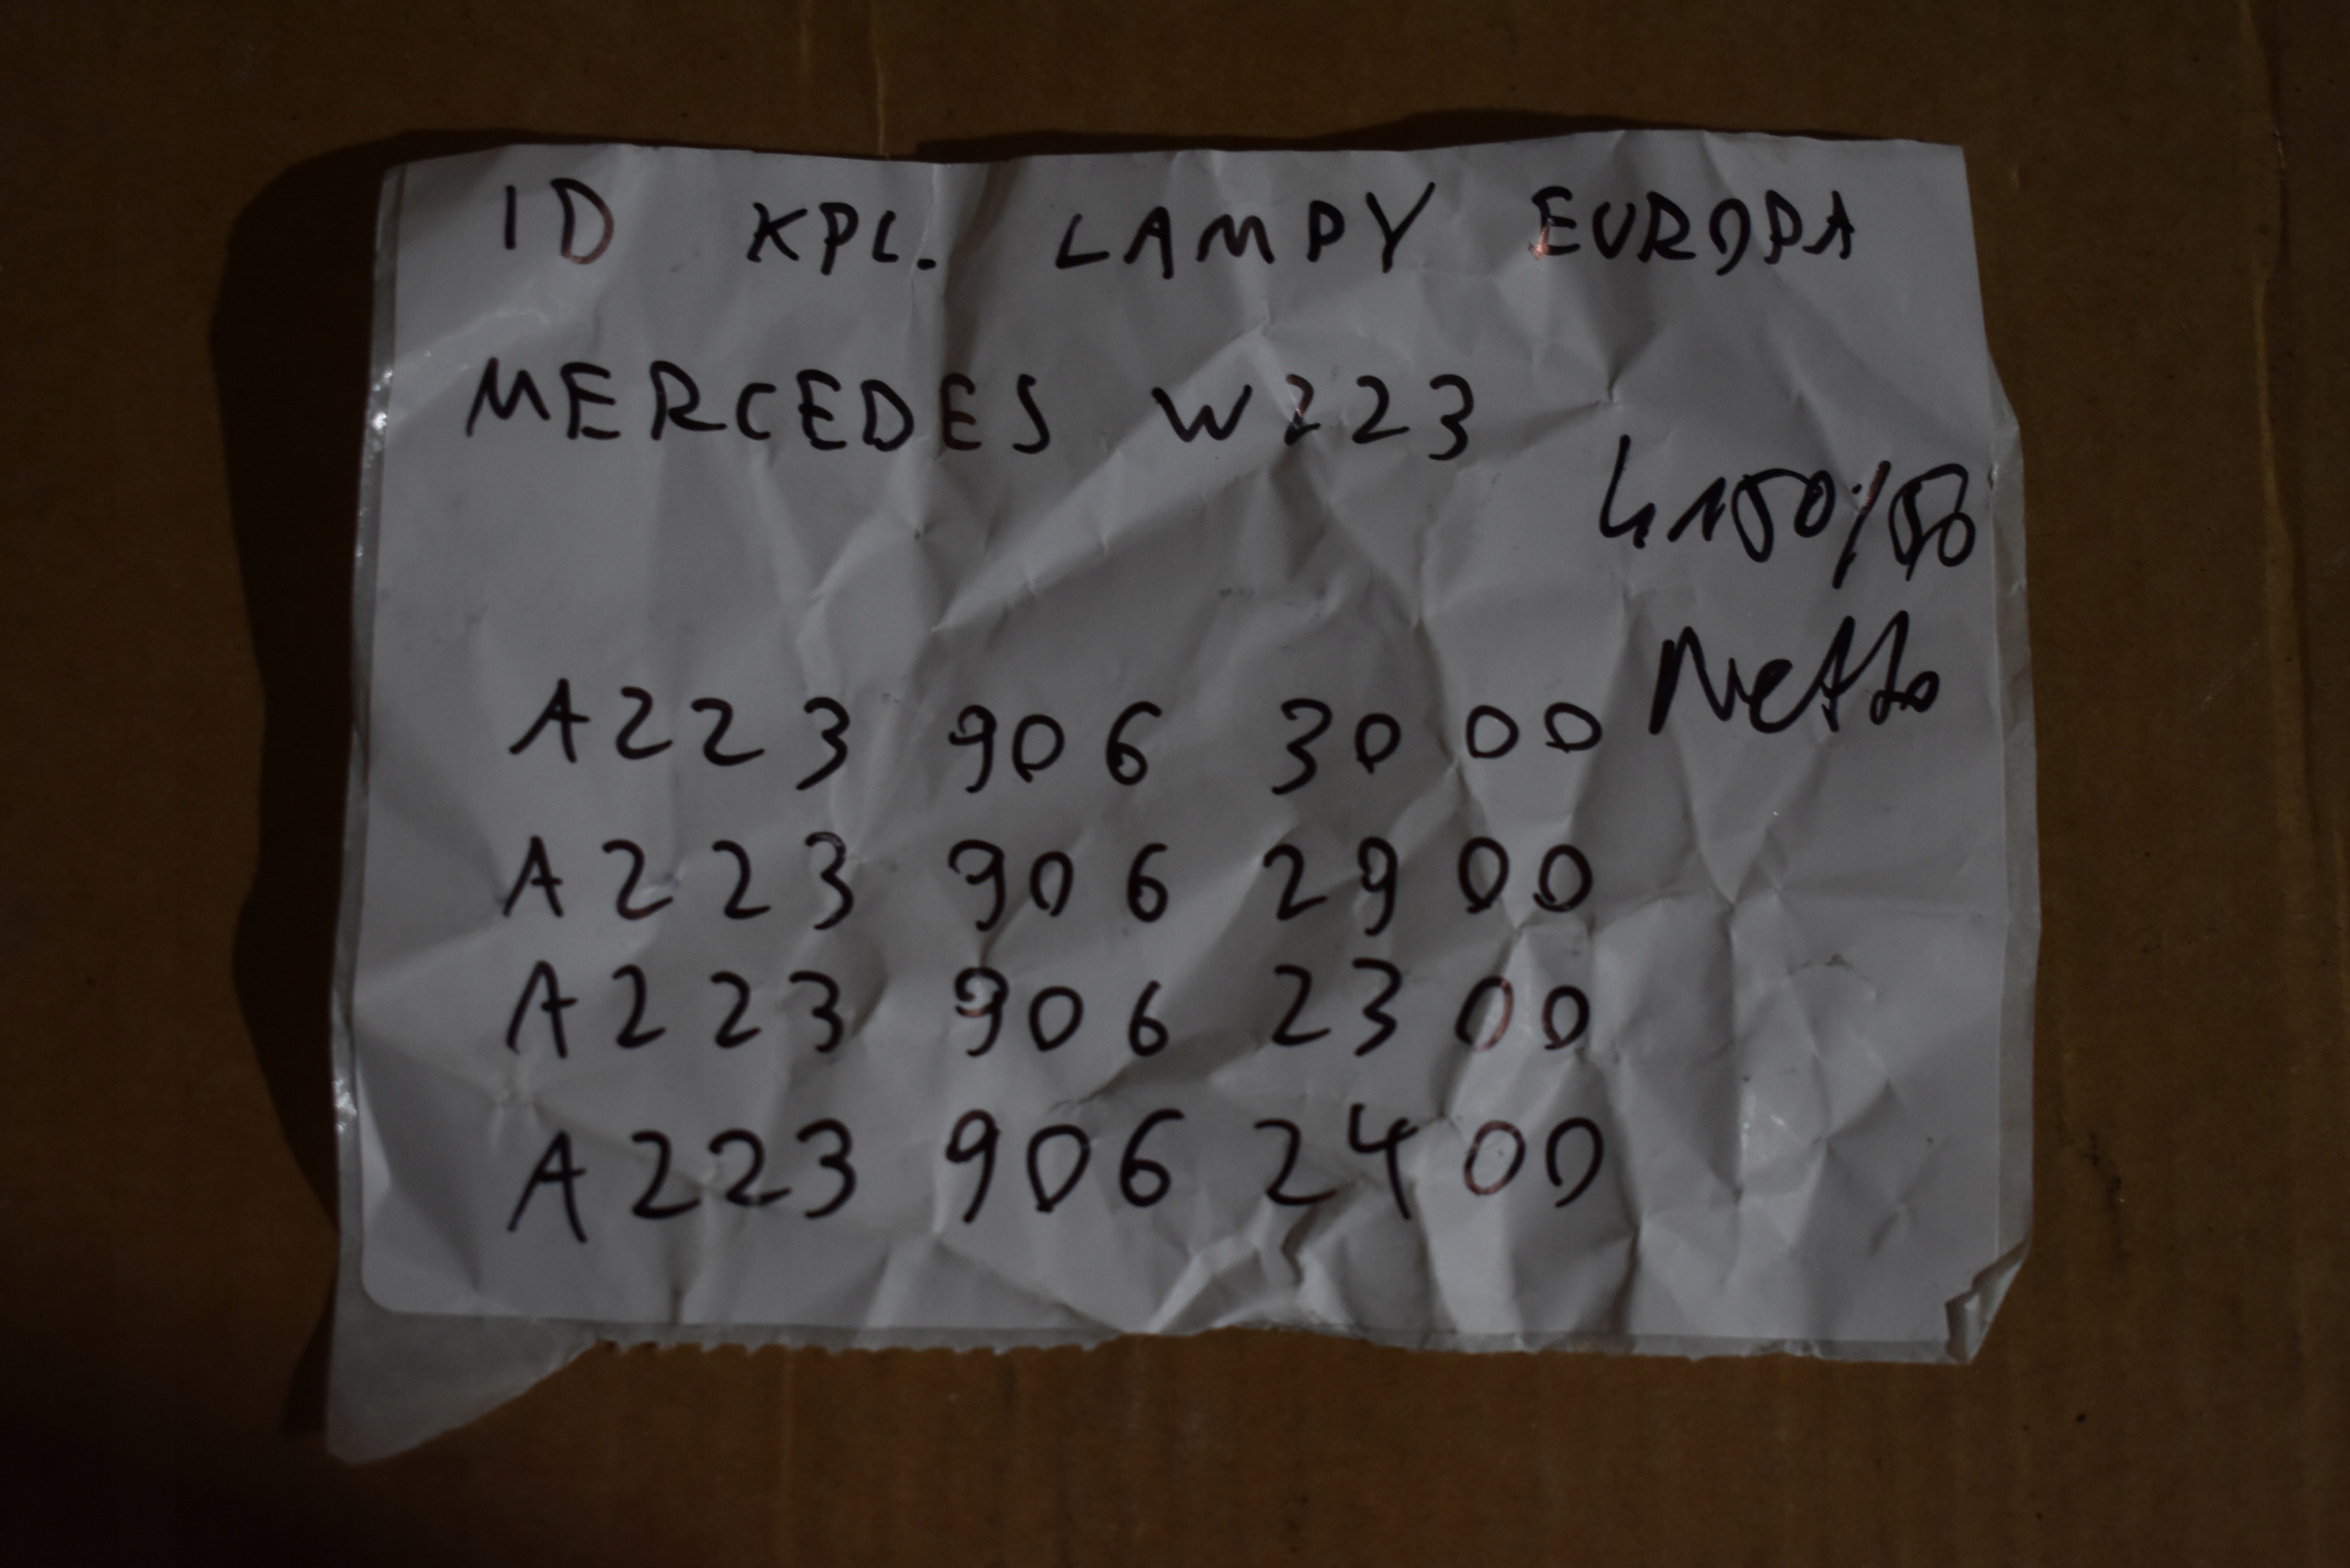 ID KPL. LAMPY EUROPA
MERCEDES W223
Netto
A223 906 30 00
A223 906 29 00
A223 906 23 00
A223 906 24 00